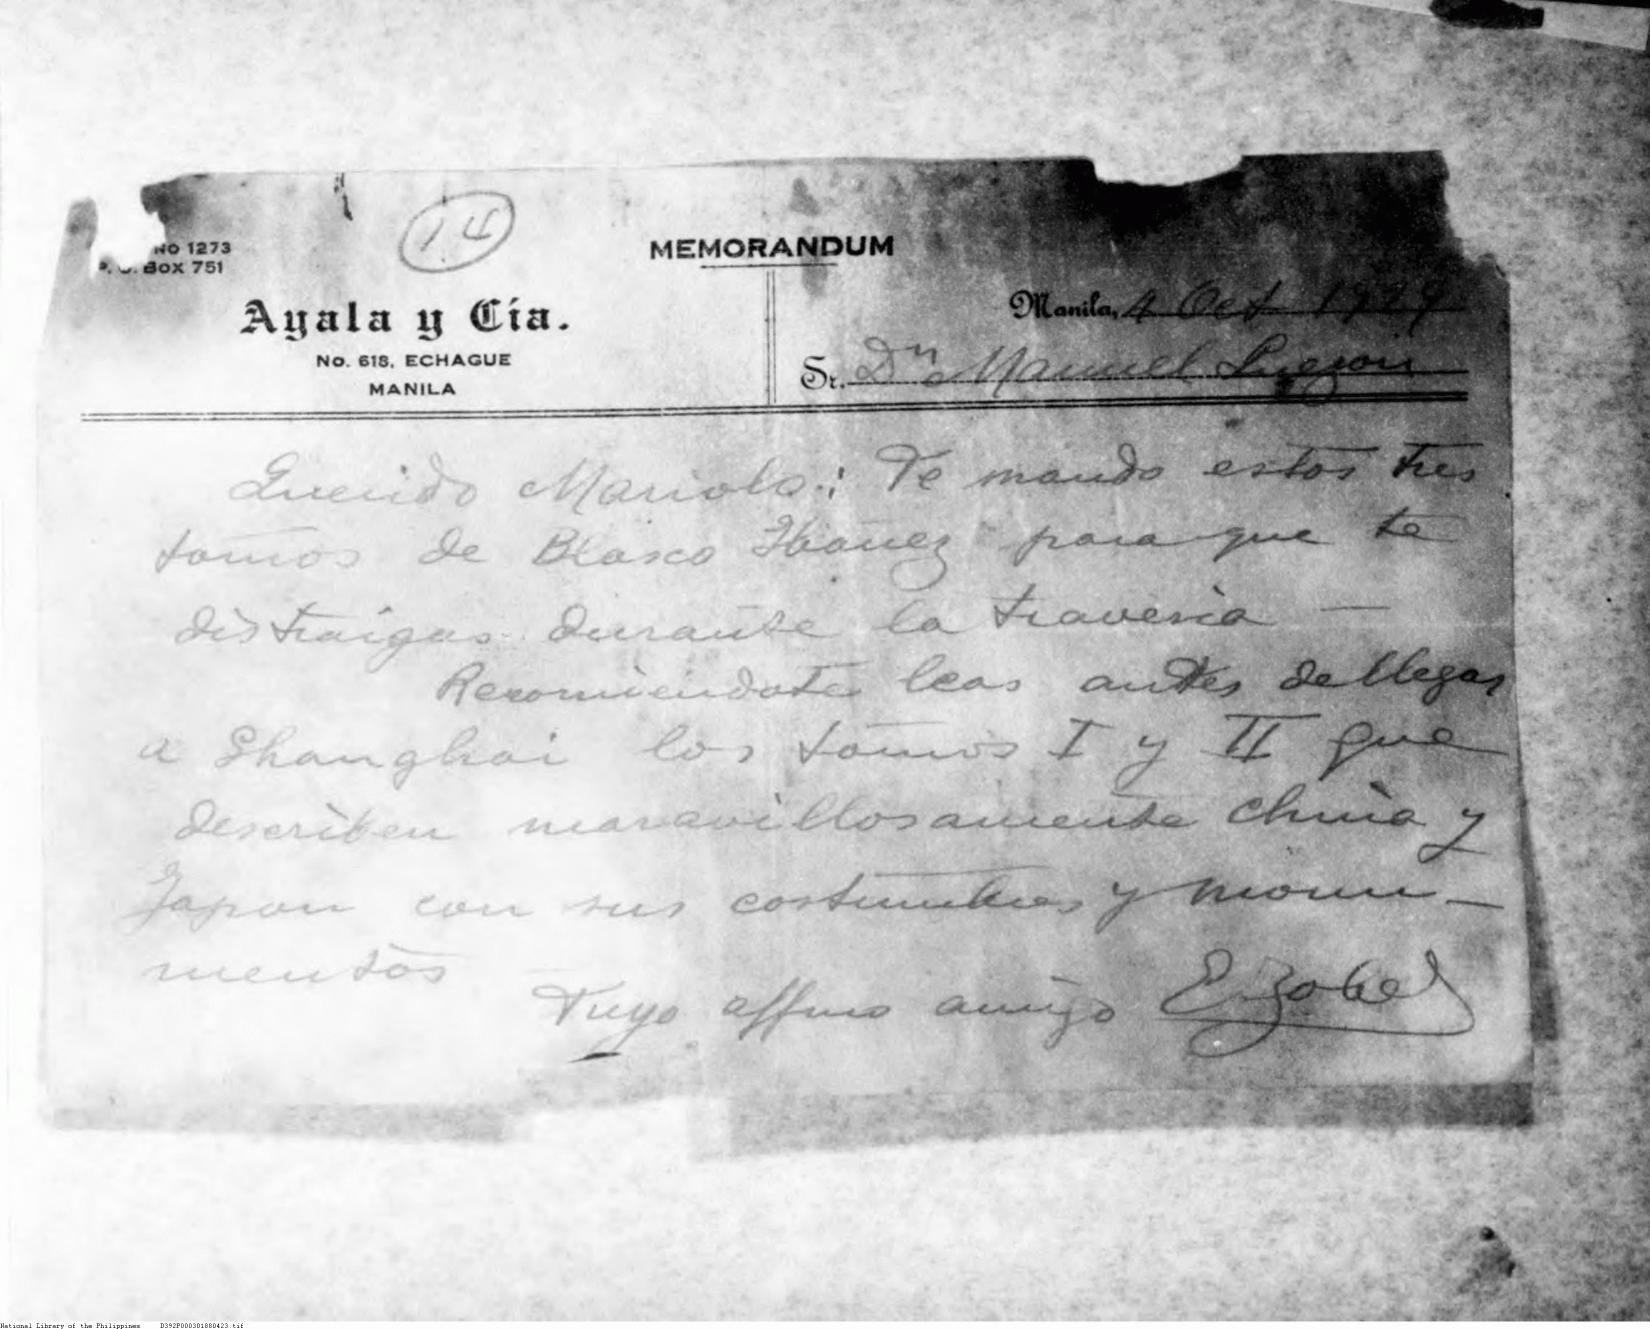 14
No 1273
P. O. Box 751
MEMORANDUM
Ayala y Cía.
No. 618, ECHAGUE
MANILA
Manila, 4 Oct 1929
Sr. Dn Manuel Quezon
Querido Manolo: Te mando estos tres
tomos de Blasco Ibañez para que te
distraigas durante la travesia —
Recomiendote leas antes de llegar
a Shanghai los tomos I y II que
describen maravillosamente China y
Japon con sus costumbres y monu-
mentos
Tuyo affmo amigo E. Zobel
National Library of the Philippines D392P000301880423.tif